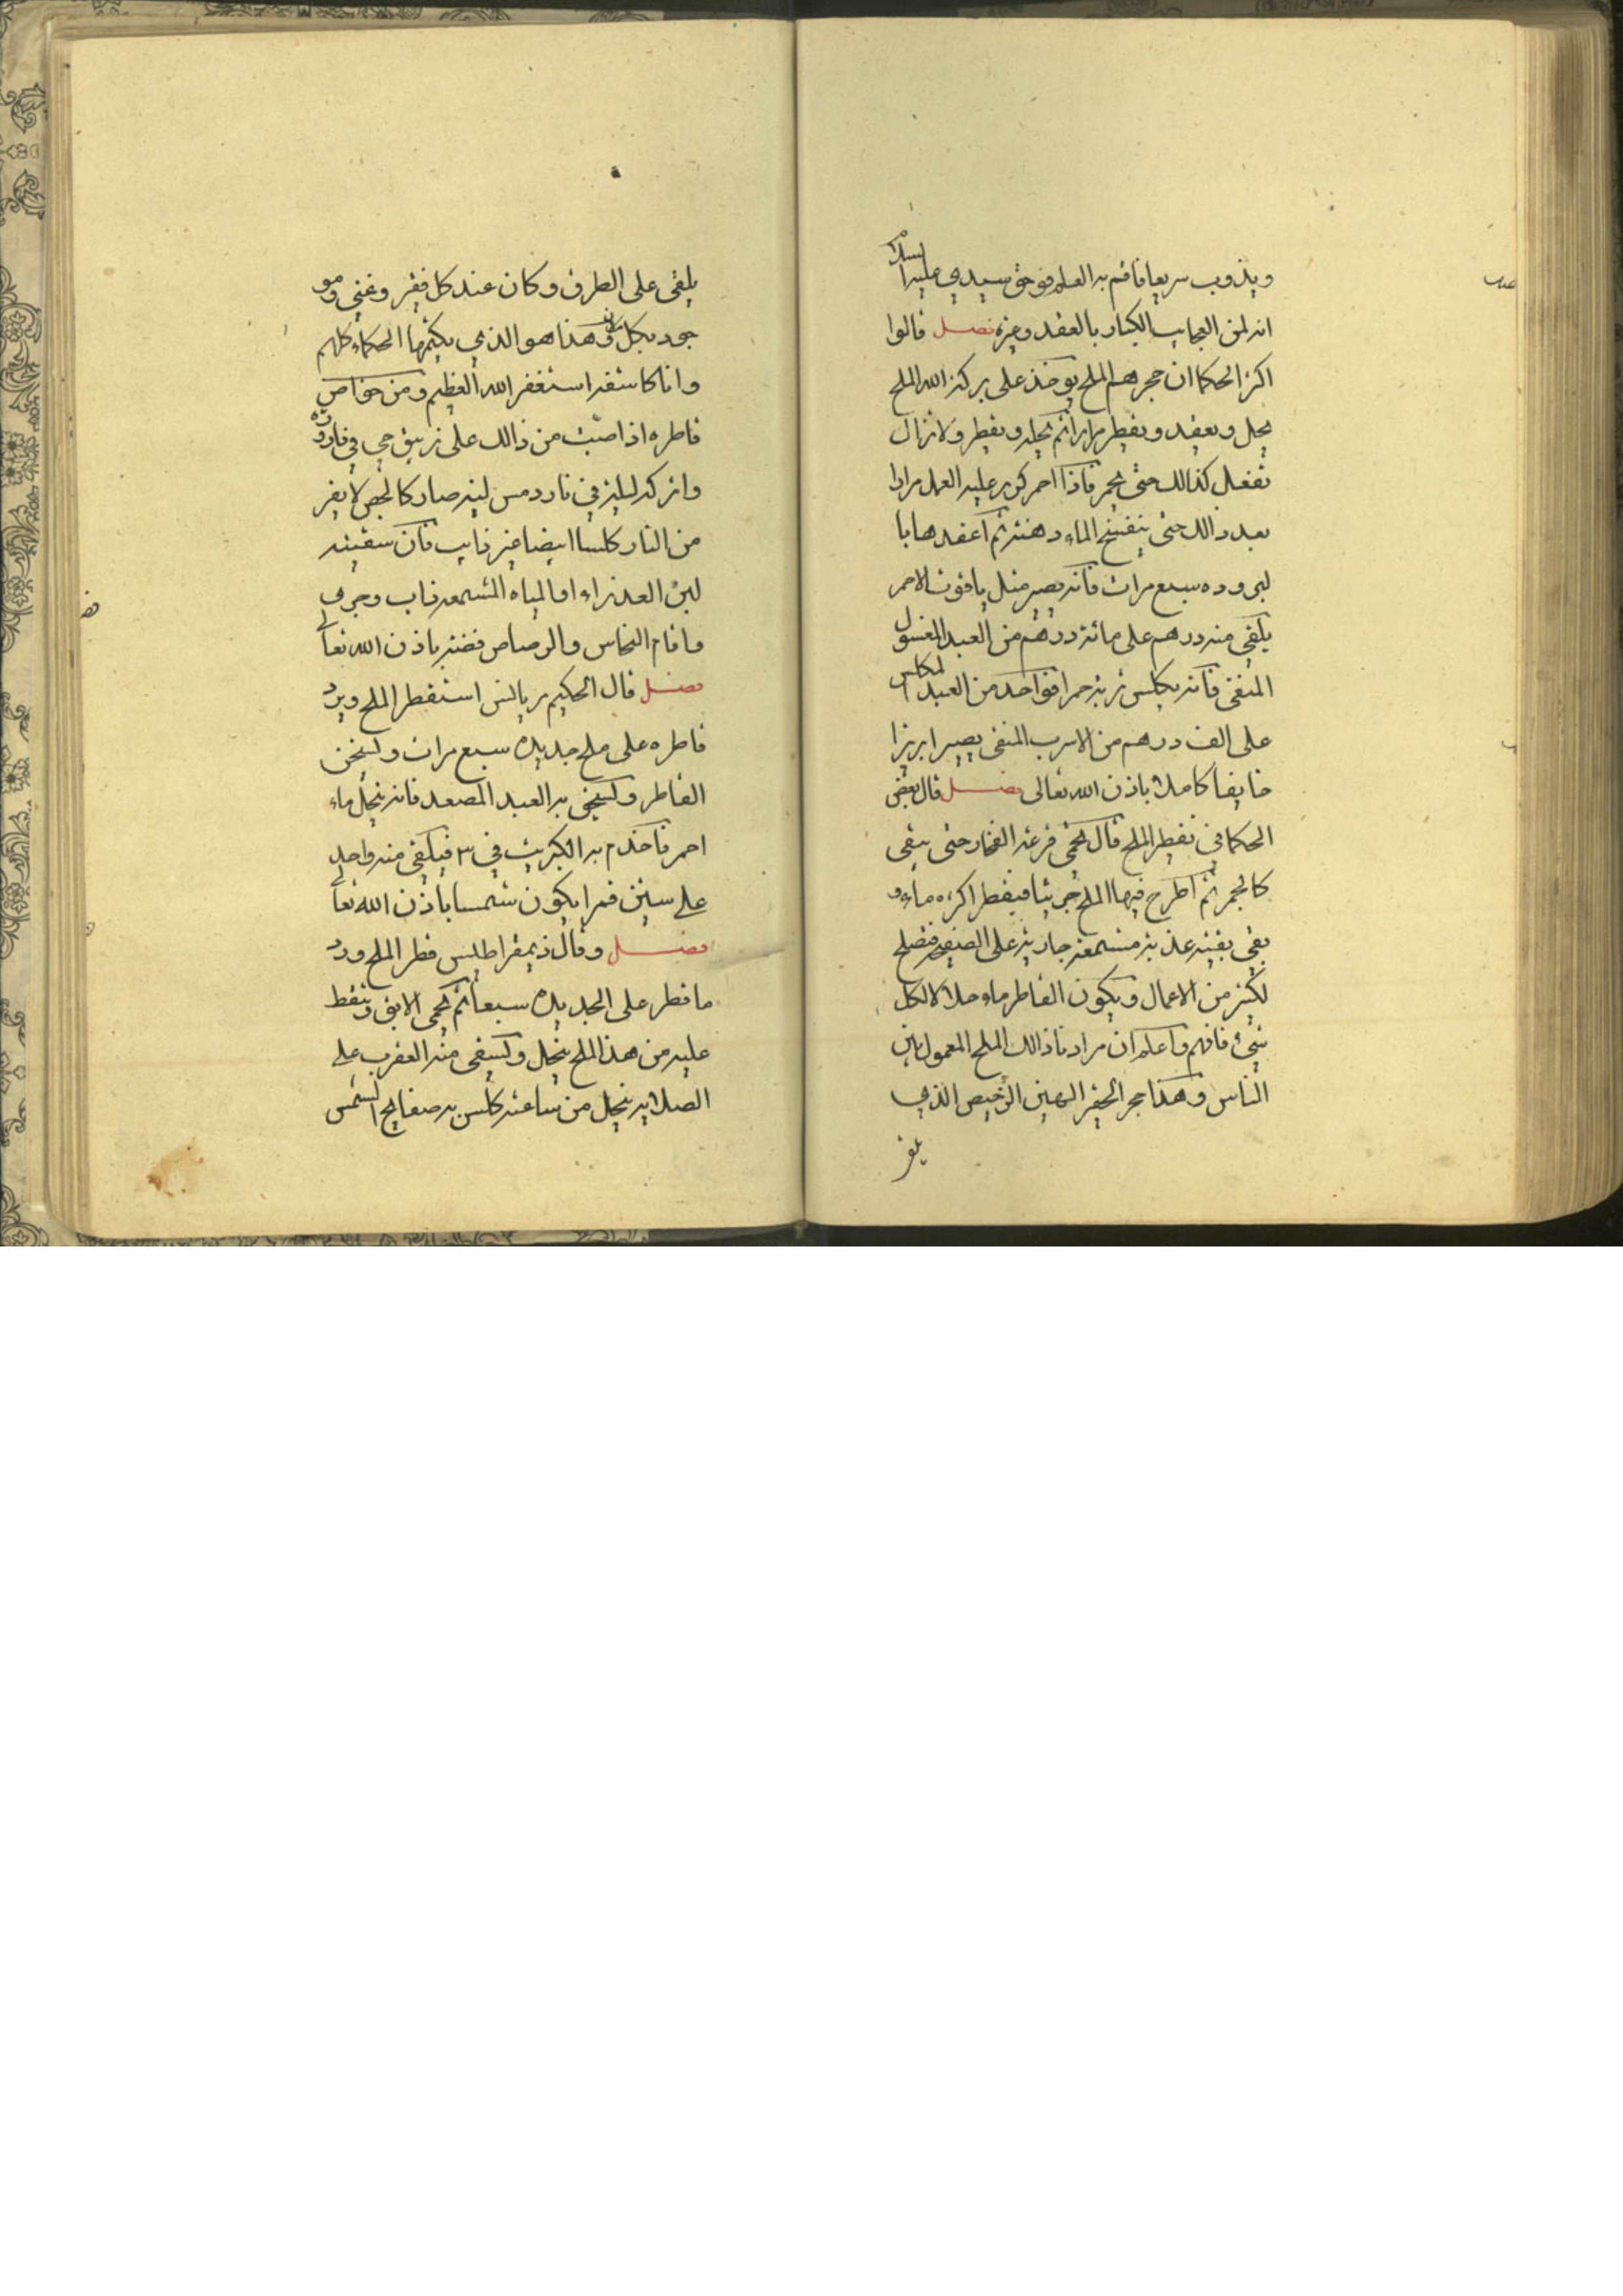 ويذوب سريعا فاقم به العلم فوحق سيدي عليه السلام
انه لمن العجايب الكبار بالعقد وغيره فصل قالوا
اكثر الحكما ان حجرهم الملح يوخذ على بركة الله الملح
يحل ويعقد ويقطر مرارا ثم يحله ويقطر ولا تزال
تفعل كذالك حتى يحمر فاذا احمر كرر عليه العمل مرارا
بعد ذالك حتى ينفتح الماء دهنة ثم اعقدها با
لبروده سبع مرات فانه يصير مثل ياقوت الاحمر
يلقى منه درهم على مائة درهم من العبد المغسول
المنقى فانه يكلس تربة حمرا فواحد من العبد المكلس
على الف درهم من الاسرب المنقى يصير ابريزا
خايفا كاملا باذن الله تعالى فصل قال بعض
الحكما في تقطير الملح قال تحمى قرعة الفخار حتى تبقى
كالجمر ثم اطرح فيها الملح جريشا فيقطر اكثره ماء و
بقي بقية عذبة مشمعة جارية على الصفيحه فتصلح
لكثير من الاعمال ويكون القاطر ماء حلالا لكل
شيء فافهم واعلم ان مرادنا ذالك الملح المعمول بين
الناس وهذا حجر الحقير الهين الرخيص الذي
يلقى
يلقى على الطرق وكان عند كل فقير وغني ومو
جود بكل مكان وهذا هو الذي يكتمها الحكماء كلهم
وانا كاشفه استغفر الله العظيم ومن خواص
قاطره اذا صبت من ذالك على زيبق حي في قارورة
واتركه ليلة في نار دمس لينه صار كالجص لا يفر
من النار كلسا ابيضا غير ذايب فان سقيته
لبن العذراء او المياه المشمعه ذاب وجرى
واقام النحاس والرصاص فضة باذن الله تعالى
فصل قال الحكيم ريالنس استقطر الملح ويرد
قاطره على ملح جديده سبع مرات وليسخن
القاطر وليسقى به العبد المصعد فانه ينحل ماء
احمر فاخدم به الكبريت في ٣ فيلقى منه واحد
على ستين قمرا يكون شمسا باذن الله تعالى
فصل وقال ذيمقراطيس قطر الملح ورد
ما قطر على الجديده سبعا ثم يحمى الابق وينقط
عليه من هذا الملح ينحل ويسقى منه العقرب على
الصلايه ينحل من ساعته كلس به صفايح الشمس